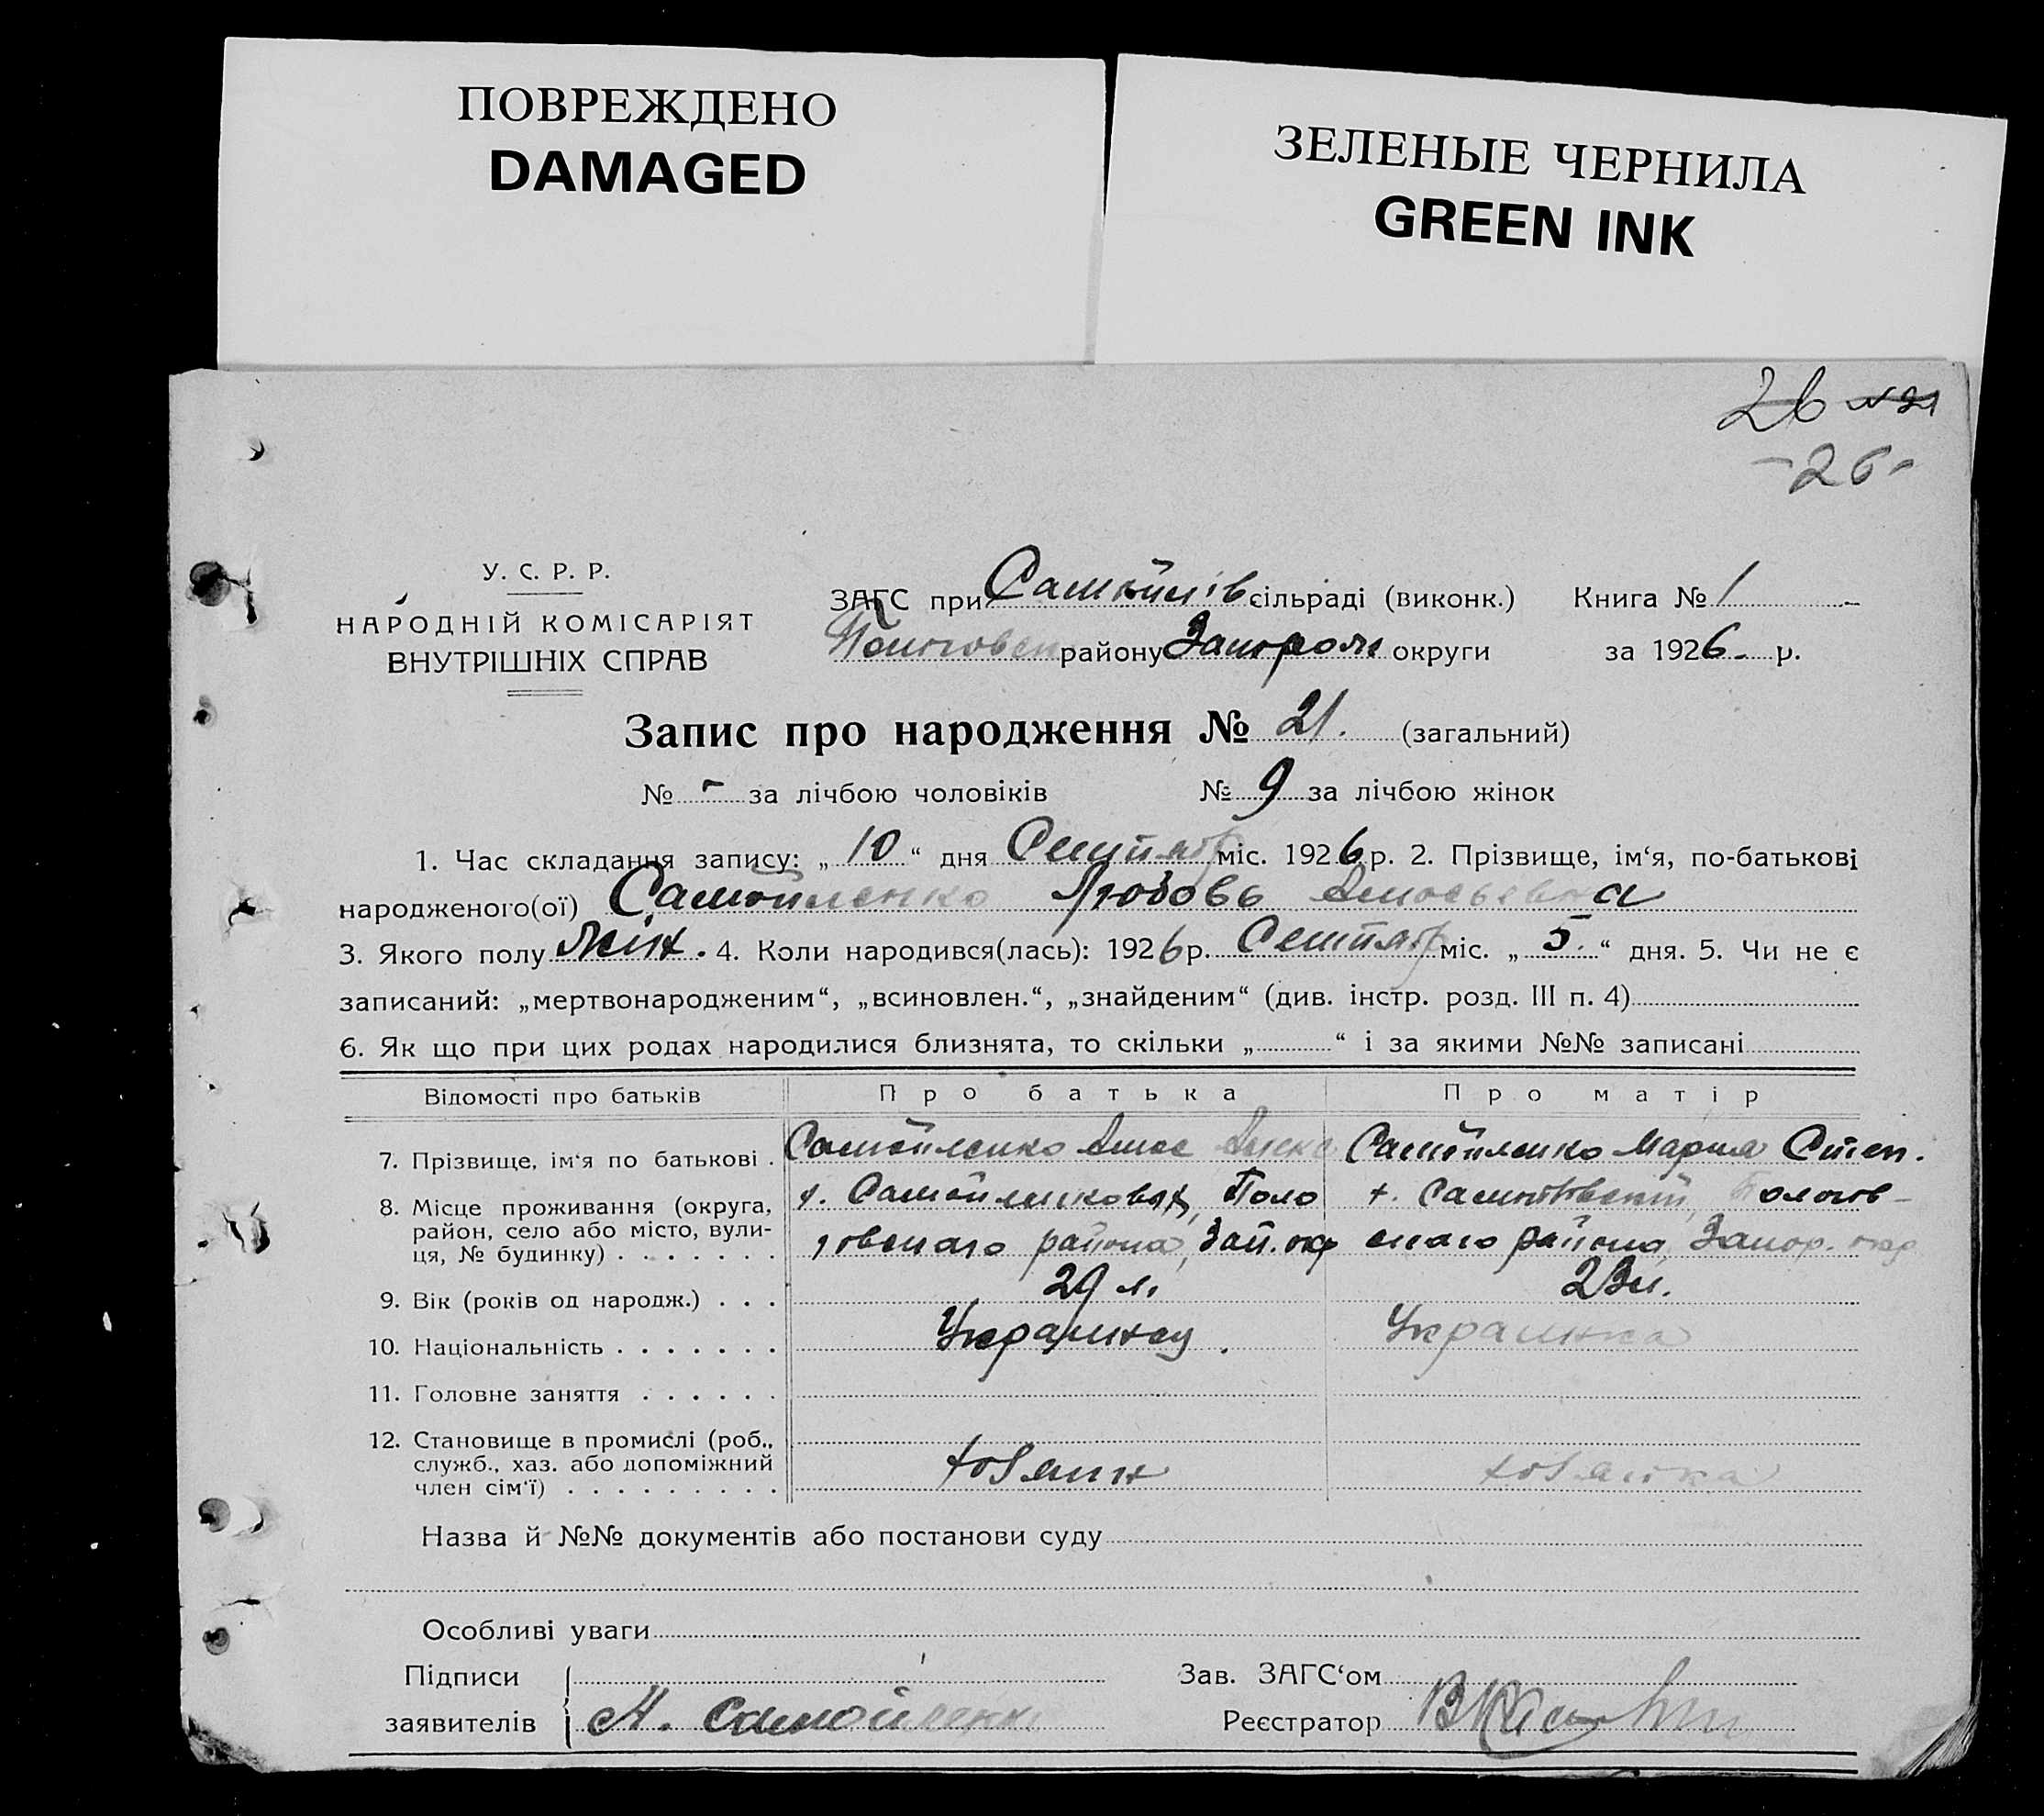 ПОВРЕЖДЕНО
DAMAGED
ЗЕЛЕНЫЕ ЧЕРНИЛА
GREEN INK
26 №21
-26-
У. С. Р. Р.
НАРОДНІЙ КОМІСАРІЯТ
ВНУТРІШНІХ СПРАВ
ЗАГС при Самойлів сільраді (виконк.) Книга № 1
района Запорож округи за 1926 р.
Запис про народження № 21. (загальний)
№ - за лічбою чоловіків № 9 за лічбою жінок
1. Час складання запису: „10“ дня Сентябр міс. 1926 р. 2. Прізвище, ім‘я, по-батькові
народженого(ої) Самойленко Любовь Амосьевна
3. Якого полу жін. 4. Коли народився(лась): 1926 р. Сентябр міс. „5.“ дня. 5. Чи не є
записаний: „мертвонародженим“, „всиновлен.“, „знайденим“ (див. інстр. розд. III п. 4)
6. Як що при цих родах народилися близнята, то скільки „ “ і за якими №№ записані
Відомості про батьків Про батька Про матір
7. Прізвище, ім‘я по батькові . Самойленко Амос Самойленко Мария Степ.
8. Місце проживання (округа, район, село або місто, вулиця, № будинку) . . . . . . .
х. Самойленковых, Поло
говского района, Зап. окр
х. Пологов-
ского района, Запор. окр
9. Вік (років од народж.) . . . 29 л. 23 л.
10. Національність . . . . . . . Украинец. Украинка
11. Головне заняття . . . . . .
12. Становище в промислі (роб., служб., хаз. або допоміжний член сім‘ї) . . . . . . . . . хозяин хозяйка
Назва й №№ документів або постанови суду
Особливі уваги
Підписи Зав. ЗАГС‘ом
заявителів А. Самойленко Реєстратор